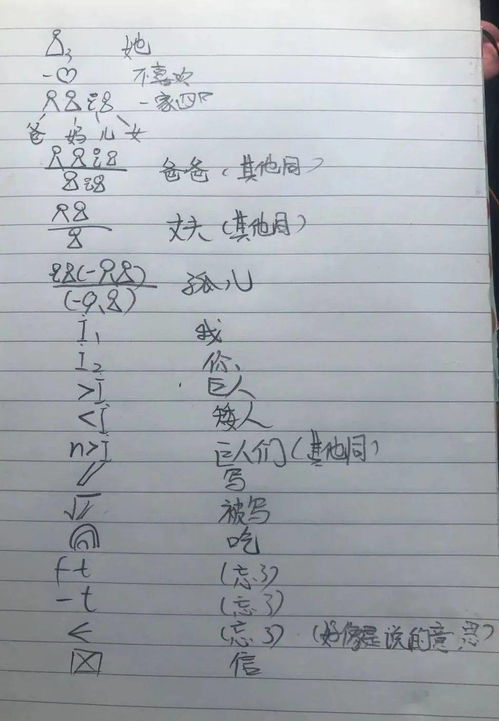 3 她
-♡ 不喜欢
一家四口
爸 妈 儿 女
爸爸(其他同)
丈夫(其他同)
孤儿
I₁ 我
I₂ 你
>I 巨人
<I 矮人
n>I 巨人们(其他同)
// 写
√// 被写
吃
ft (忘了)
-t (忘了)
< (忘了) (好像是说的意思)
信